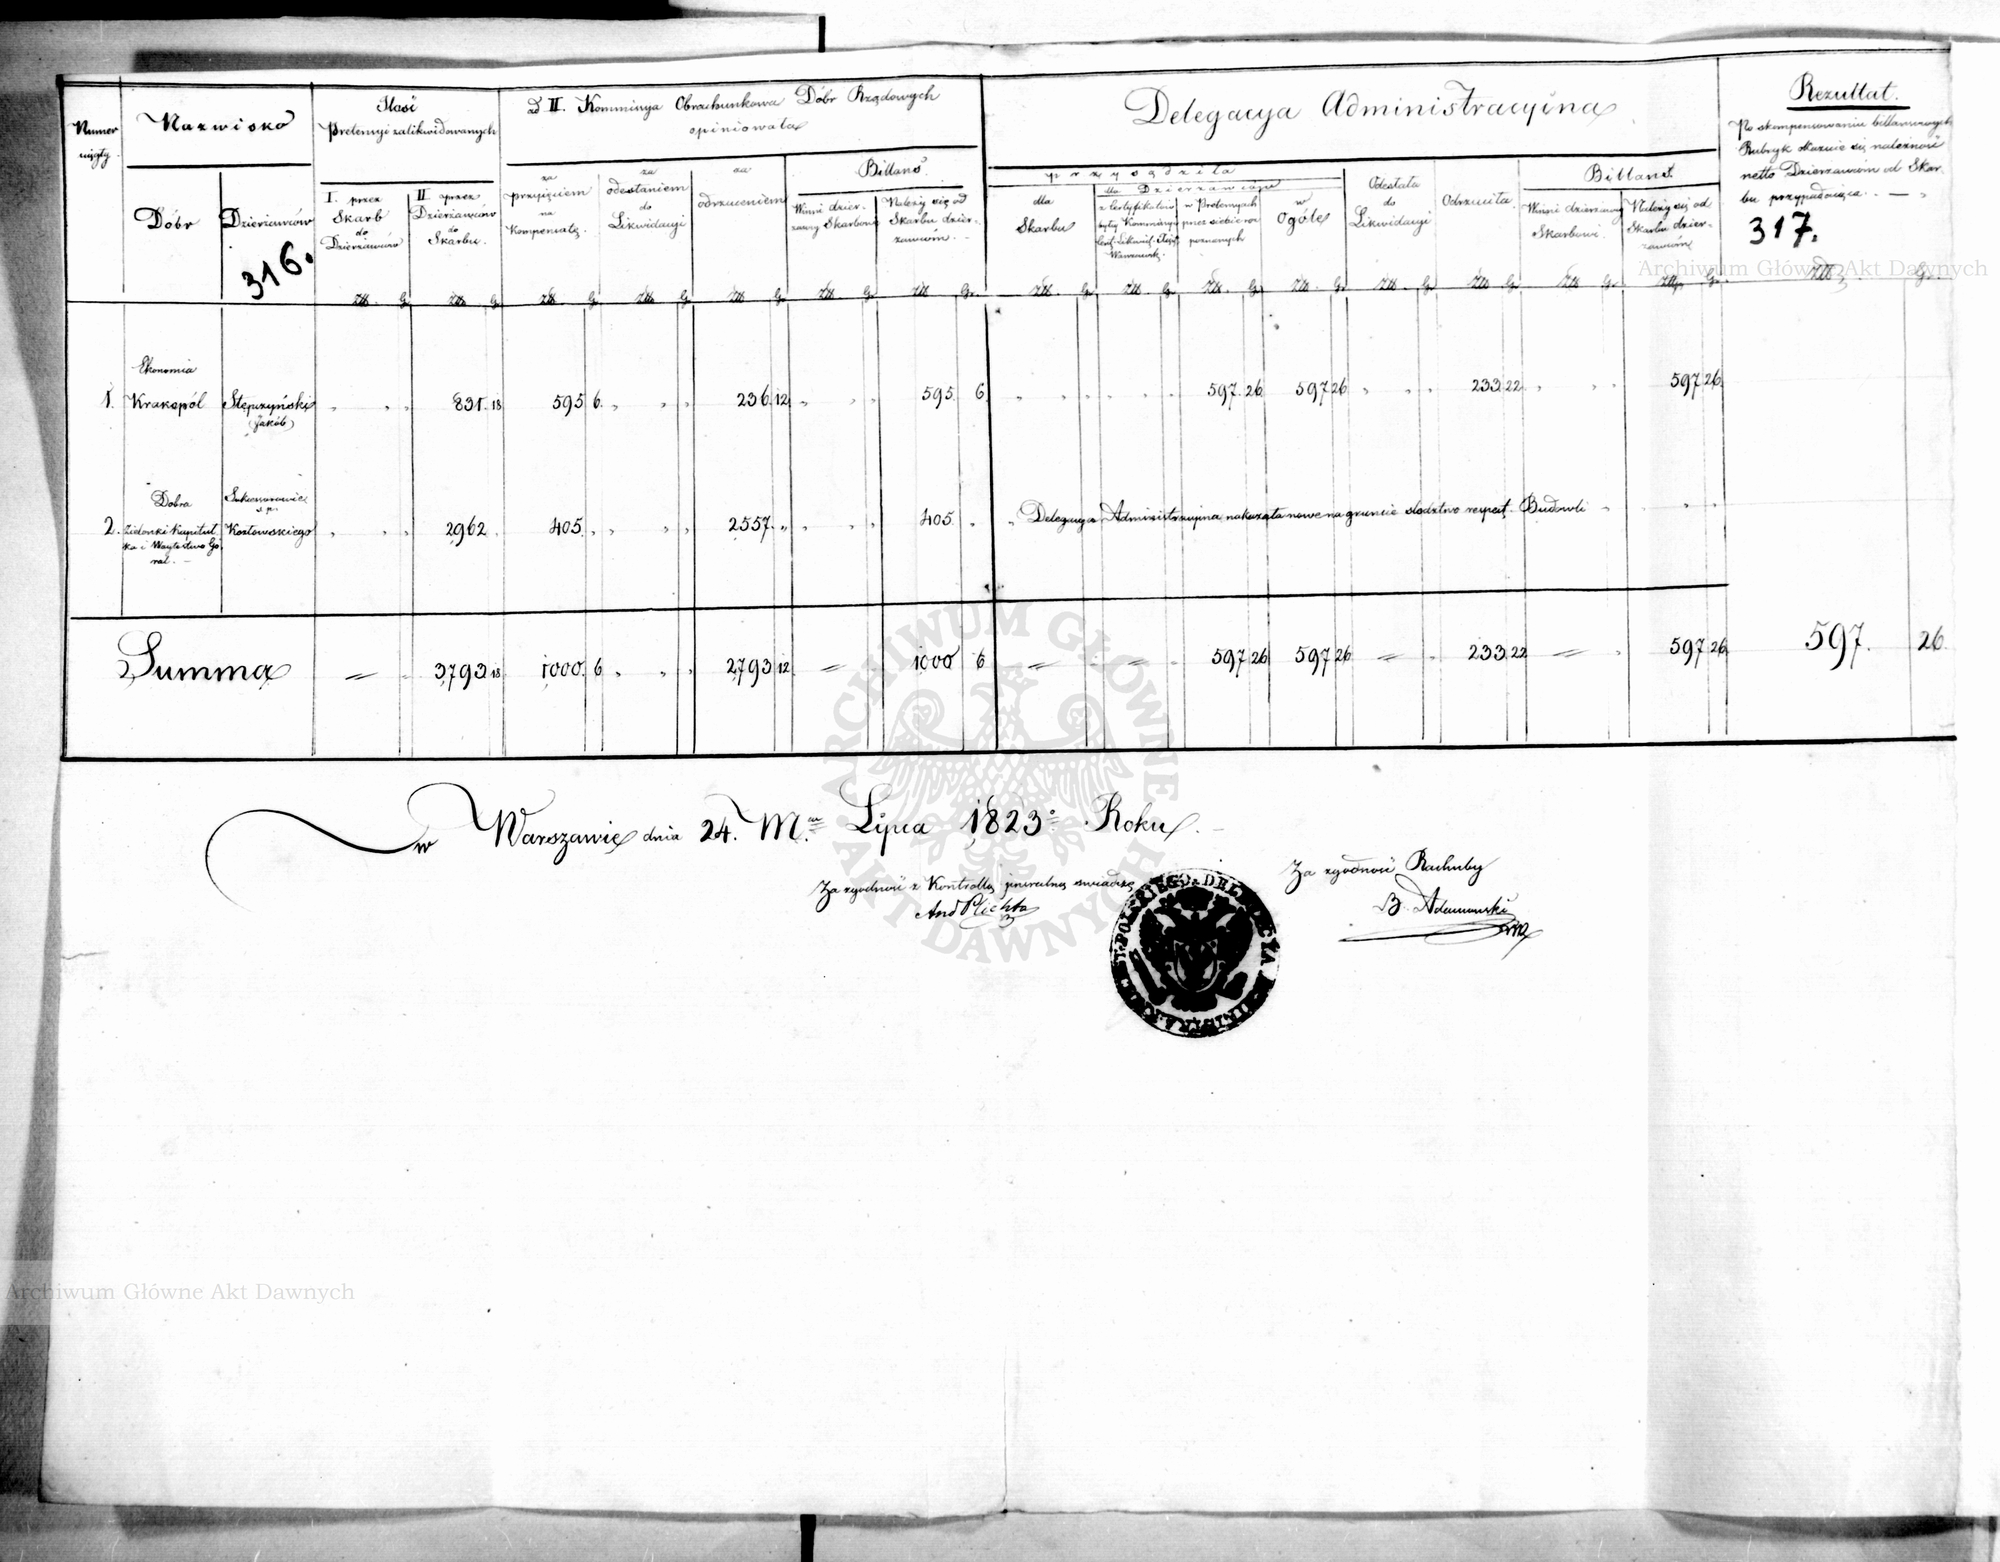 Numer
ciągły
Nazwisko
Dóbr
Dzierżawców
316.
Ilość
Pretensyi zalikwidowanych
I. przez
Skarb
do
Dzierżawców
II przez
Dzierżawców
do
Skarbu.
ad II. Kommissya Obrachunkowa Dóbr Rządowych
opiniowała
za
przyjęciem
na
Kompensatę.
za
odesłaniem
do
Likwidacyi
za
odrzuceniem
Billans
Winni dzier-
żawcy Skarbowi
Należy się od
Skarbu dzier-
żawcom.
Delegacya Administracyina
przysądziła
dla
Skarbu
dla Dzierżawców
z Certyfikatów
byłey Kommissyi
Warszawsk.
w Pretensyach
przez siebie roz
poznanych
w
Ogóle
Odesłała
do
Likwidacyi
Odrzuciła
Billans.
Winni dzierżawcy
Skarbowi.
Należy się od
Skarbu dzier-
żawcom
Rezultat.
Po skompensowaniu billansowych
Rubryk okazuie się należność
netto Dzierżawcom od Skar
bu przypadaiąca. —
317.
Złł. Gr. Złł. Gr. Złł. Gr. Złł. Gr. Złł. Gr. Złł. Gr. Złł. Gr. Złł. Gr. Złł. Gr. Złł. Gr. Złł. Gr. Złł. Gr. Złł. Gr. Złł. Gr. Złł. Gr. Złł. Gr.
Ekonomia
1. Krakopól Stępczyński 831. 18 595 6. 236. 12 595. 6 597. 26 597 26 233 22 597 26
(Jakób)
Dobra Sukcessorowie
s.p.
2. Zielonki Kapitul Kozłowskiego 2962. 405. 2557. 405. Delegacya Administracyina nakazała nowe na gruncie śledztwo respect. Budowli
ka i Woytostwo Go
ral. —
Summa 3,793 18 1,000. 6 2,793 12 1000 6 597 26 597 26 233. 22 597 26 597. 26.
w Warszawie dnia 24. M.ca Lipca 1,823.o Roku. —
Za zgodność z Kontrollą jeneralną świadczę
And Plichta
Za zgodność Rachuby
B. Adamowski
Archiwum Główne Akt Dawnych
Archiwum Główne Akt Dawnych
ARCHIWUM GŁÓWNE
AKT DAWNYCH